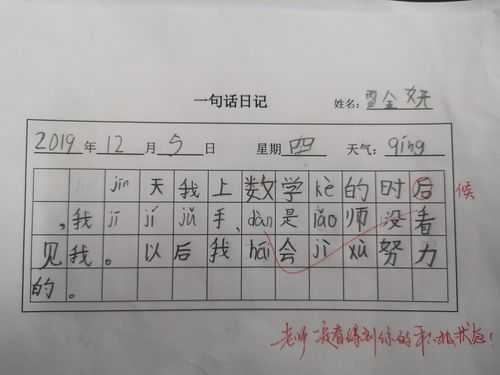 一句话日记
姓名:雪金妍
2019年12月5日 星期四 天气:qíng
jīn天我上数学kè的时后 候
,我jī jí jǔ手,dàn是lǎo师没看
见我。以后我hái会jì xù努力
的。
老师没看得到你的积极状态!